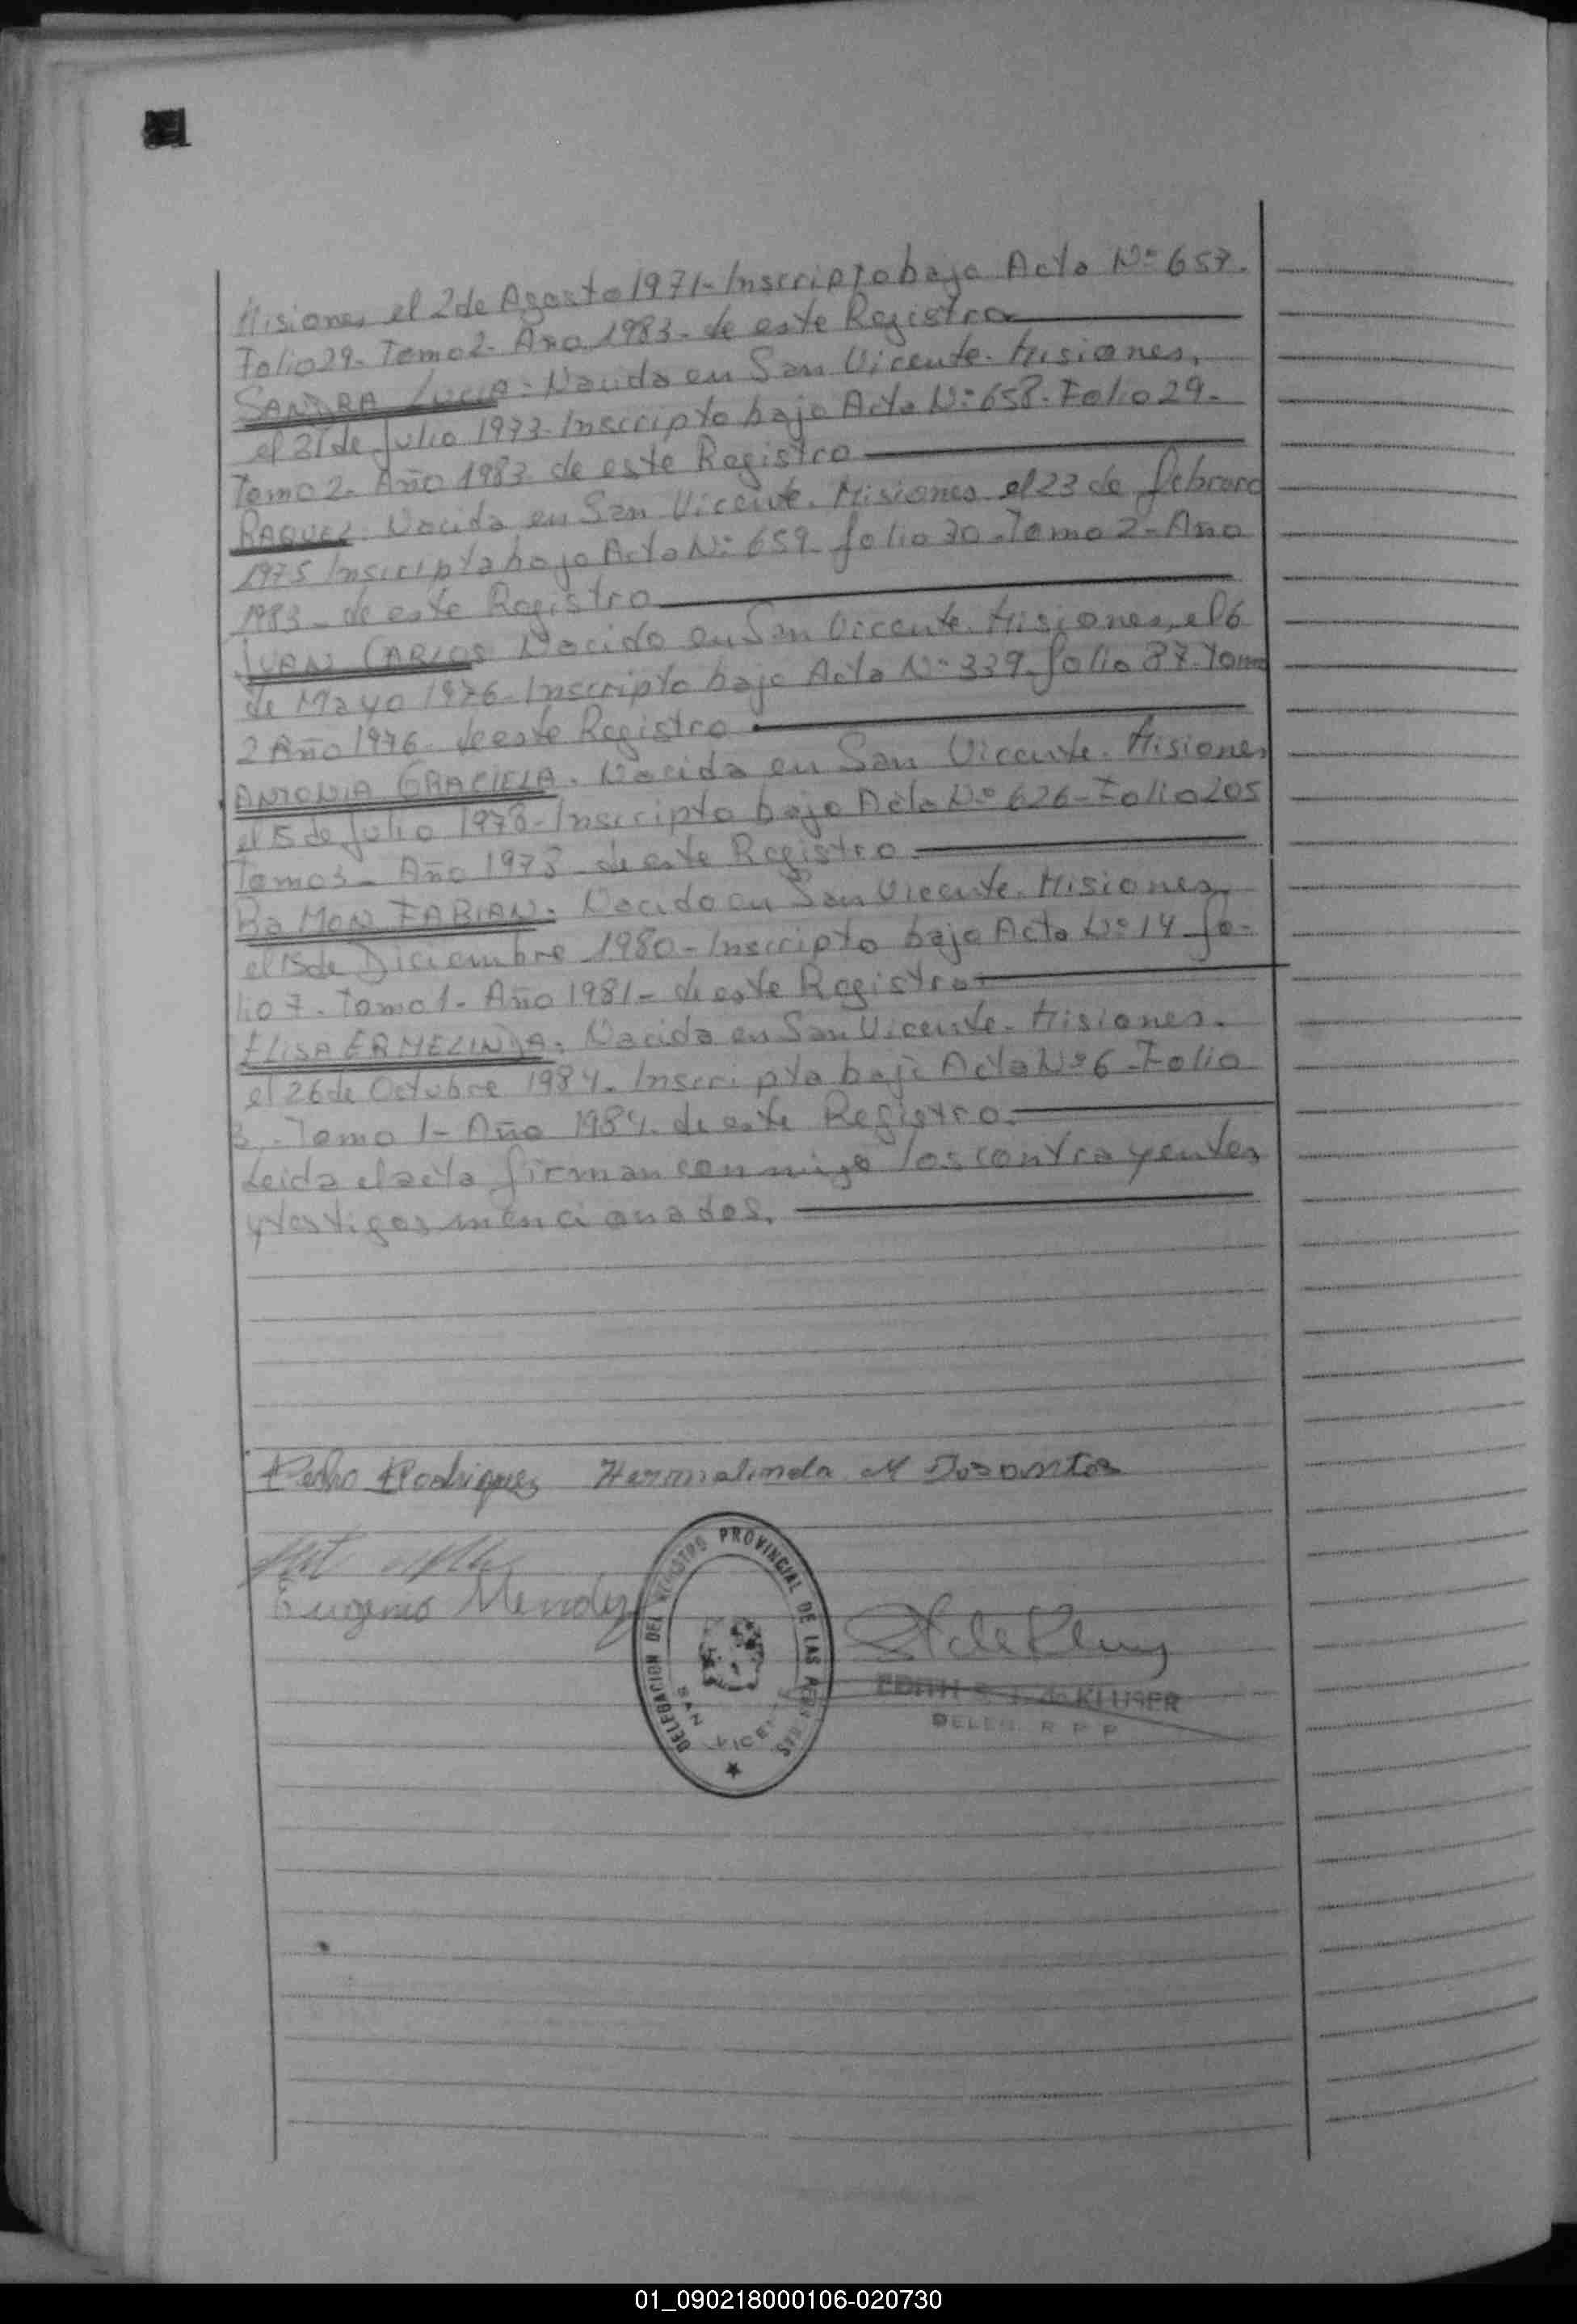 Misiones el 2 de Agosto 1971- Inscripto bajo Acta Nº 657.
Folio 29- Tomo 2- Año 1983- de este Registro
SANDRA LUCIA: Nacida en San Vicente. Misiones,
el 21 de Julio 1973- Inscripto bajo Acta Nº 658- Folio 29-
Tomo 2- Año 1983 de este Registro
RAQUEL: Nacida en San Vicente. Misiones el 23 de febrero
1975 Inscripta bajo Acta Nº 659 folio 30- Tomo 2- Año
1983- de este Registro
JUAN CARLOS Nacido en San Vicente. Misiones, el 6
de Mayo 1976- Inscripto bajo Acta Nº 339- folio 87- Tomo
2 Año 1976. de este Registro
ANTONIA GRACIELA. Nacida en San Vicente. Misiones
el 15 de Julio 1978- Inscripto bajo Acta Nº 626- Folio 205
Tomo 3- Año 1978 de este Registro
RAMON FABIAN. Nacido en San Vicente. Misiones,
el 15 de Diciembre 1980- Inscripto bajo Acta Nº 14 fo-
lio 7. Tomo 1- Año 1981- de este Registro
ELISA ERMELINDA. Nacida en San Vicente- Misiones.
el 26 de Octubre 1984. Inscripta bajo Acta Nº 6- Folio
3. Tomo 1- Año 1984. de este Registro.
Leida el acta firman conmigo los contrayentes
y testigos mencionados.
Pedro Rodriguez Hermelinda M Dosantos
Eugenio Mendez
DELEGACION DEL REGISTRO PROVINCIAL DE LAS PERSONAS
SAN VICENTE
EDITH S. J. de KLUSER
DELEG. R P P
01_090218000106-020730